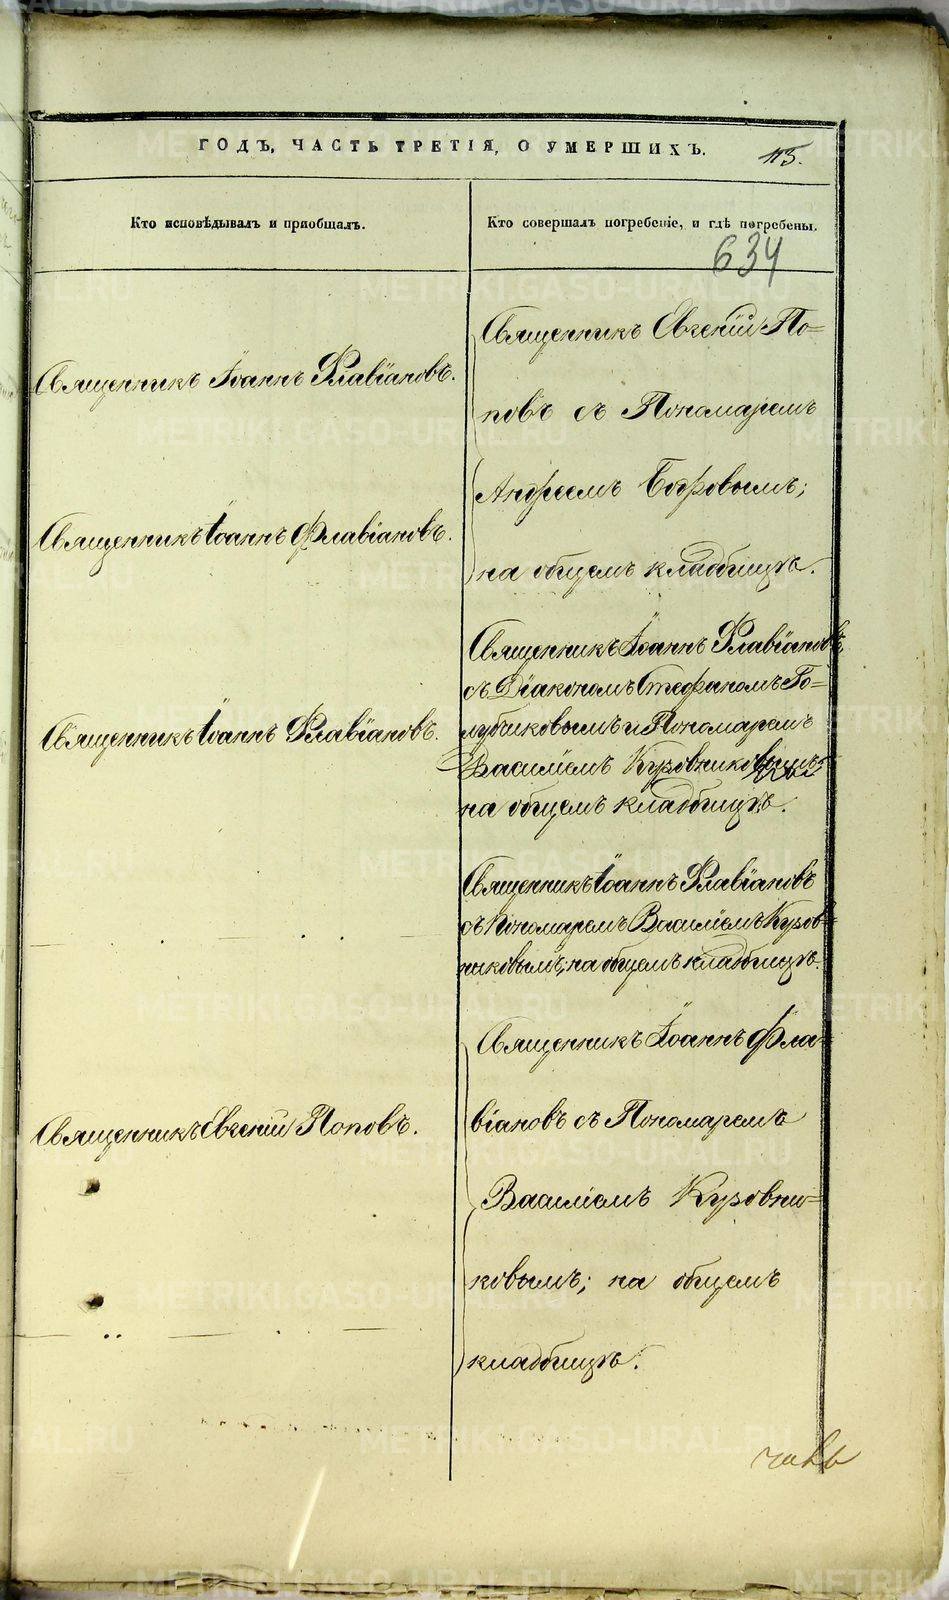 ГОДЪ, ЧАСТЬ ТРЕТІЯ, О УМЕРШИХЪ.
115.
Кто исповѣдывалъ и пріобщалъ.
Кто совершалъ погребеніе, и гдѣ погребены.
634
Священникъ Іоаннъ Флавіановъ.
Священникъ Евгеній По=
повъ съ Пономаремъ
Андреемъ
на общемъ кладбищѣ.
Священникъ Іоаннъ Флавіановъ.
Священникъ Іоаннъ Флавіановъ.
Священникъ Іоаннъ Флавіановъ
съ Діакономъ Стефаномъ Го=
лубчиковымъ и Пономаремъ
Василіемъ Кузовниковымъ
на общемъ кладбищѣ.
Священникъ Іоаннъ Флавіановъ
съ Пономаремъ Василіемъ Кузов=
никовымъ; на общемъ кладбищѣ.
Священникъ Евгеній Поповъ.
Священникъ Іоаннъ Фла=
віановъ съ Пономаремъ
Василіемъ Кузовни=
ковымъ; на общемъ
кладбищѣ.
METRIKI.GASO-URAL.RU